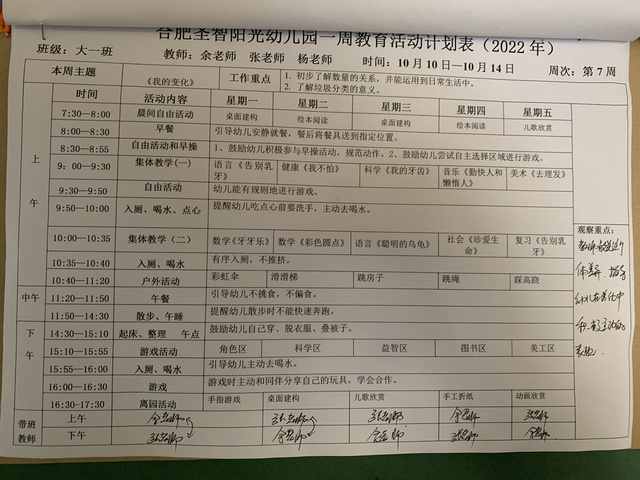 合肥圣智阳光幼儿园一周教育活动计划表（2022 年）
班级：大一班 教师：余老师 张老师 杨老师 时间：10 月 10 日—10 月 14 日 周次：第 7 周
本周主题 《我的变化》 工作重点 1. 初步了解数量的关系，并能运用到日常生活中。
2. 了解垃圾分类的意义。
时间 活动内容 星期一 星期二 星期三 星期四 星期五
上午
7:30—8:00 晨间自由活动 桌面建构 绘本阅读 桌面建构 绘本阅读 儿歌欣赏
8:00—8:30 早餐 引导幼儿安静就餐，餐后将餐具送到指定位置。
8:30—8:55 自由活动和早操 1、鼓励幼儿积极参与早操活动，规范动作。2、鼓励幼儿尝试自主选择区域进行游戏。
9：00—9:30 集体教学(一) 语言《告别乳牙》 健康《我不怕》 科学《我的牙齿》 音乐《勤快人和懒惰人》 美术《去理发》
9:30—9:50 自由活动 幼儿能有规则地进行游戏。
9:50—10:00 入厕、喝水、点心 提醒幼儿吃点心前要洗手，主动去喝水。
10:00—10:35 集体教学（二） 数学《牙牙乐》 数学《彩色圆点》 语言《聪明的乌龟》 社会《珍爱生命》 复习《告别乳牙》
10:35—10:40 入厕、喝水 有序入厕，不推挤。
10:40—11:20 户外活动 彩虹伞 滑滑梯 跳房子 跳绳 踩高跷
中午
11:20—11:50 午餐 引导幼儿不挑食，不偏食。
11:50—14:30 散步、午睡 提醒幼儿散步时不能快速奔跑。
下午
14:30—15:10 起床、整理 午点 鼓励幼儿自己穿、脱衣服、叠被子。
15:10—15:55 游戏活动 角色区 科学区 益智区 图书区 美工区
15:55—16:00 入厕、喝水 引导幼儿主动去喝水。
16:00—16:30 游戏 游戏时主动和同伴分享自己的玩具，学会合作。
16:30-17:30 离园活动 手指游戏 桌面建构 儿歌欣赏 手工折纸 动画欣赏
带班教师
上午 余老师 张老师 张老师 余老师 张老师
下午 张老师 余老师 余老师 张老师 余老师
观察重点：